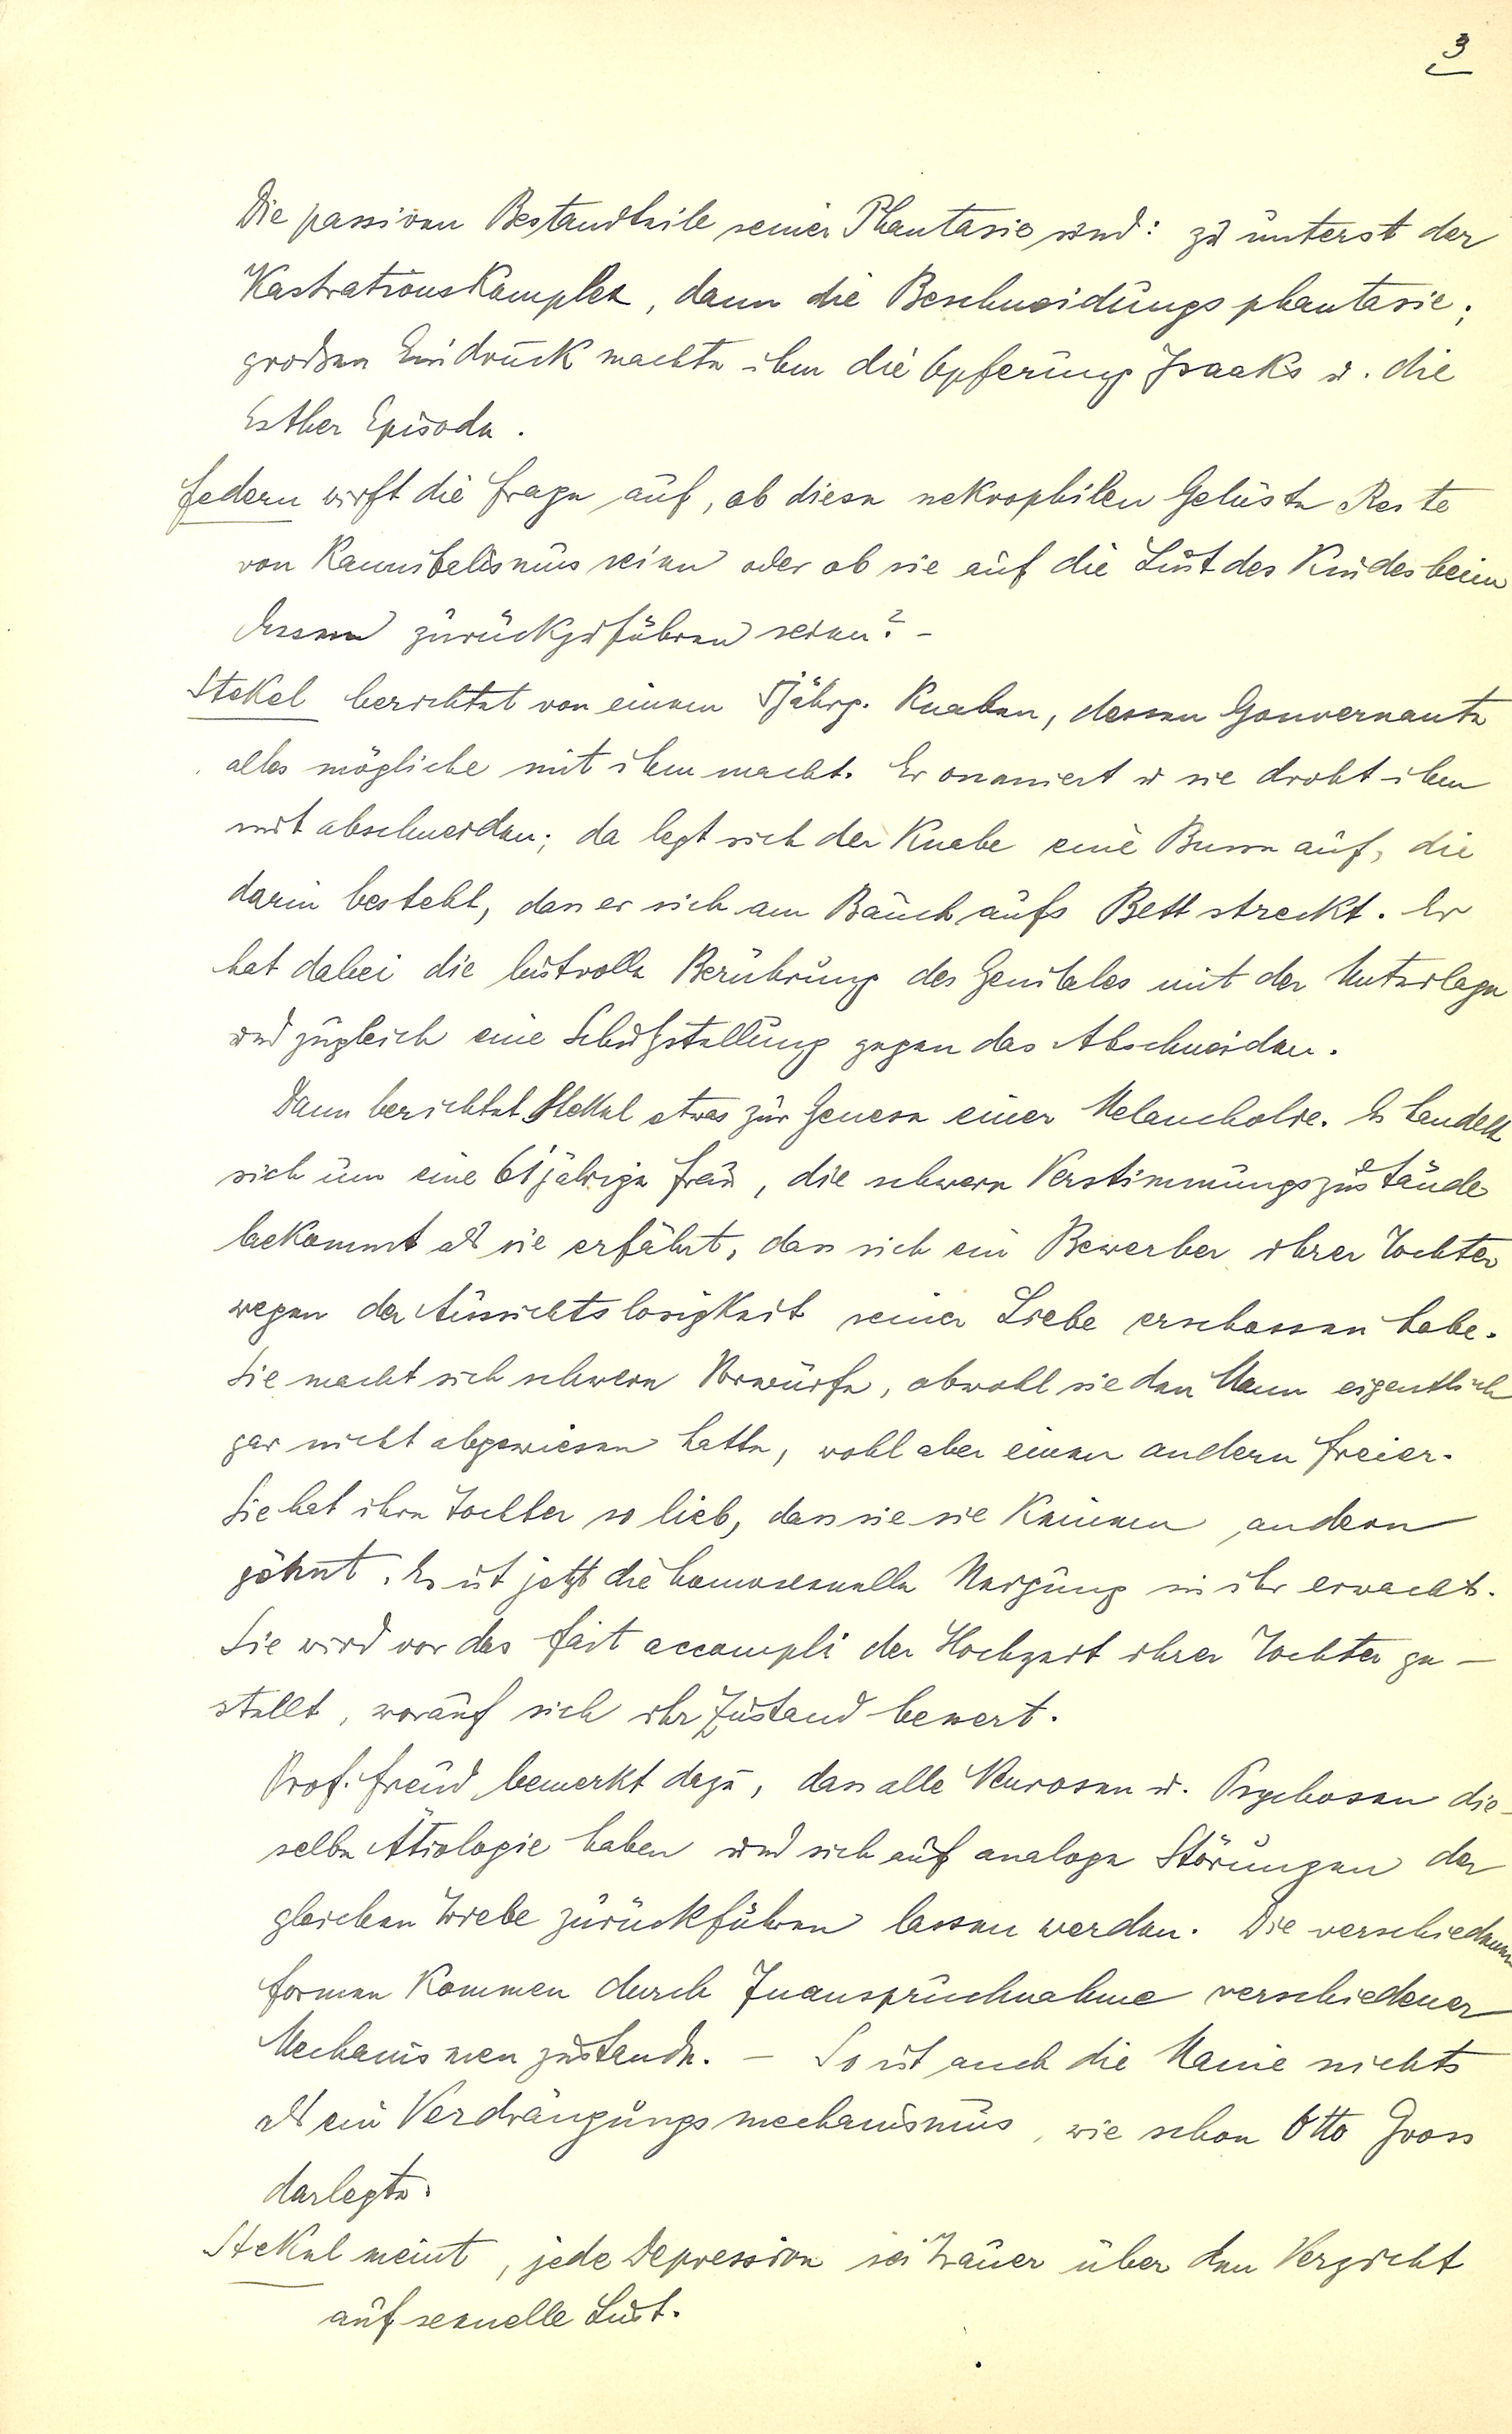 3
Die passiven Bestandteile seiner Phantasie sind: zu unterst der
Kastrationskomplex, dann die Beschneidungsphantasie;
großen Eindruck machte ihm die Opferung Isaaks u. die
Esther Episode.
Federn wirft die Frage auf, ob diese nekrophilen Gelüste Reste
von Kannibalismus seien oder ob sie auf die Lust des Kindes beim
Essen zurückzuführen seien? –
Stekel berichtet von einem 5jährg. Knaben, dessen Gouvernante
alles mögliche mit ihm macht. Er onaniert u sie droht ihm
mit abschneiden; da legt sich der Knabe eine Busse auf, die
darin besteht, dass er sich am Bauch aufs Bett streckt. Er
hat dabei die lustvolle Berührung des Genitales mit der Unterlage
und zugleich eine Schutzstellung gegen das Abschneiden.
Dann berichtet Stekel etwas zur Genese einer Melancholie. Es handelt
sich um eine 61jährige Frau, die schwere Verstimmungszustände
bekommt als sie erfährt, dass sich ein Bewerber ihrer Tochter
wegen der Aussichtslosigkeit seiner Liebe erschossen habe.
Sie macht sich schwere Vorwürfe, obwohl sie den Mann eigentlich
gar nicht abgewiesen hatte, wohl aber einen andern Freier.
Sie hat ihre Tochter so lieb, dass sie sie keinem andern
gönnt. Es ist jetzt die homosexuelle Neigung in ihr erwacht.
Sie wird vor das fait accompli der Hochzeit ihrer Tochter ge–
stellt, worauf sich ihr Zustand bessert.
Prof. Freud bemerkt dazu, dass alle Neurosen u. Psychosen die–
selbe Ätiologie haben und sich auf analoge Störungen der
gleichen Triebe zurückführen lassen werden. Die verschiedenen
Formen kommen durch Inanspruchnahme verschiedener
Mechanismen zustande. – So ist auch die Manie nichts
als ein Verdrängungsmechanismus, wie schon Otto Gross
darlegte.
Stekel meint, jede Depression sei Trauer über den Verzicht
auf sexuelle Lust.